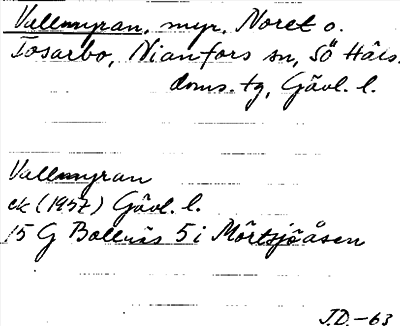 Vallmyran, myr, Noret o.
Tosarbo, Nianfors sn, Sö Häls.
doms. tg, Gävl. l.
Vallmyran
ek (1957) Gävl. l.
15 G Bollnäs 5 i Mörtsjöåsen
J.D. -63